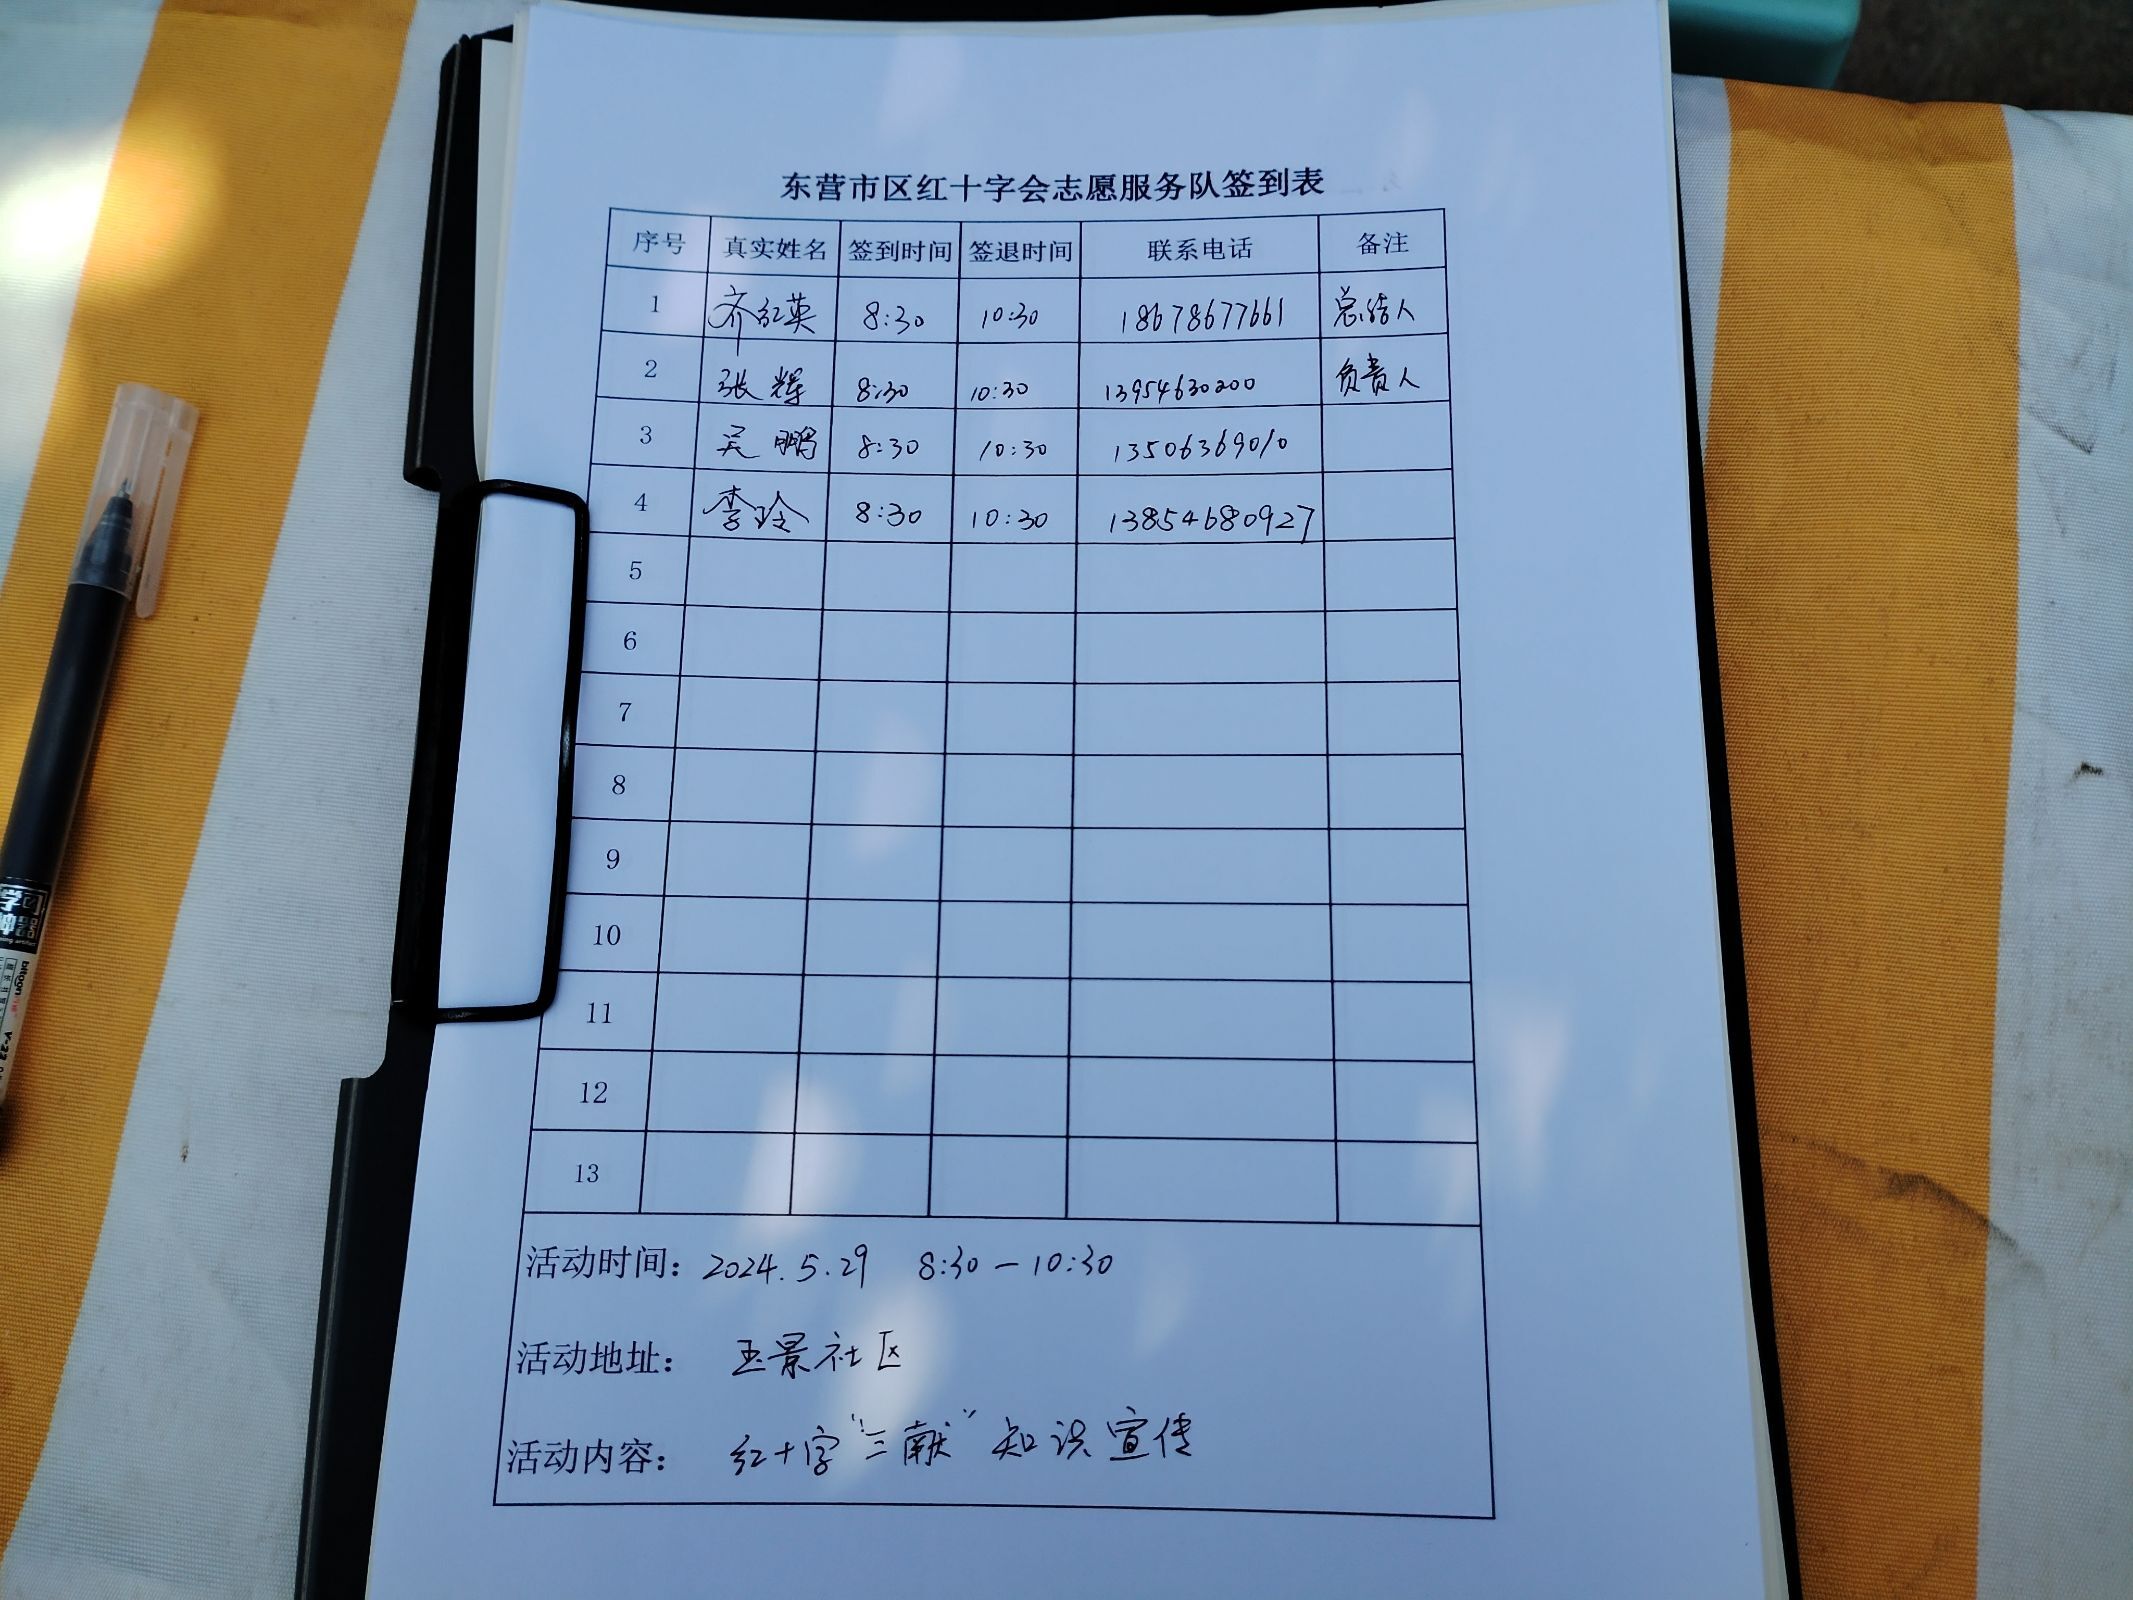 东营市区红十字会志愿服务队签到表
序号 真实姓名 签到时间 签退时间 联系电话 备注
1 齐红英 8:30 10:30 18678677661 总结人
2 张辉 8:30 10:30 13954630200 负责人
3 吴鹏 8:30 10:30 13506369010
4 李玲 8:30 10:30 13854680927
5
6
7
8
9
10
11
12
13
活动时间：2024.5.29 8:30—10:30
活动地址： 玉景社区
活动内容： 红十字“三献”知识宣传